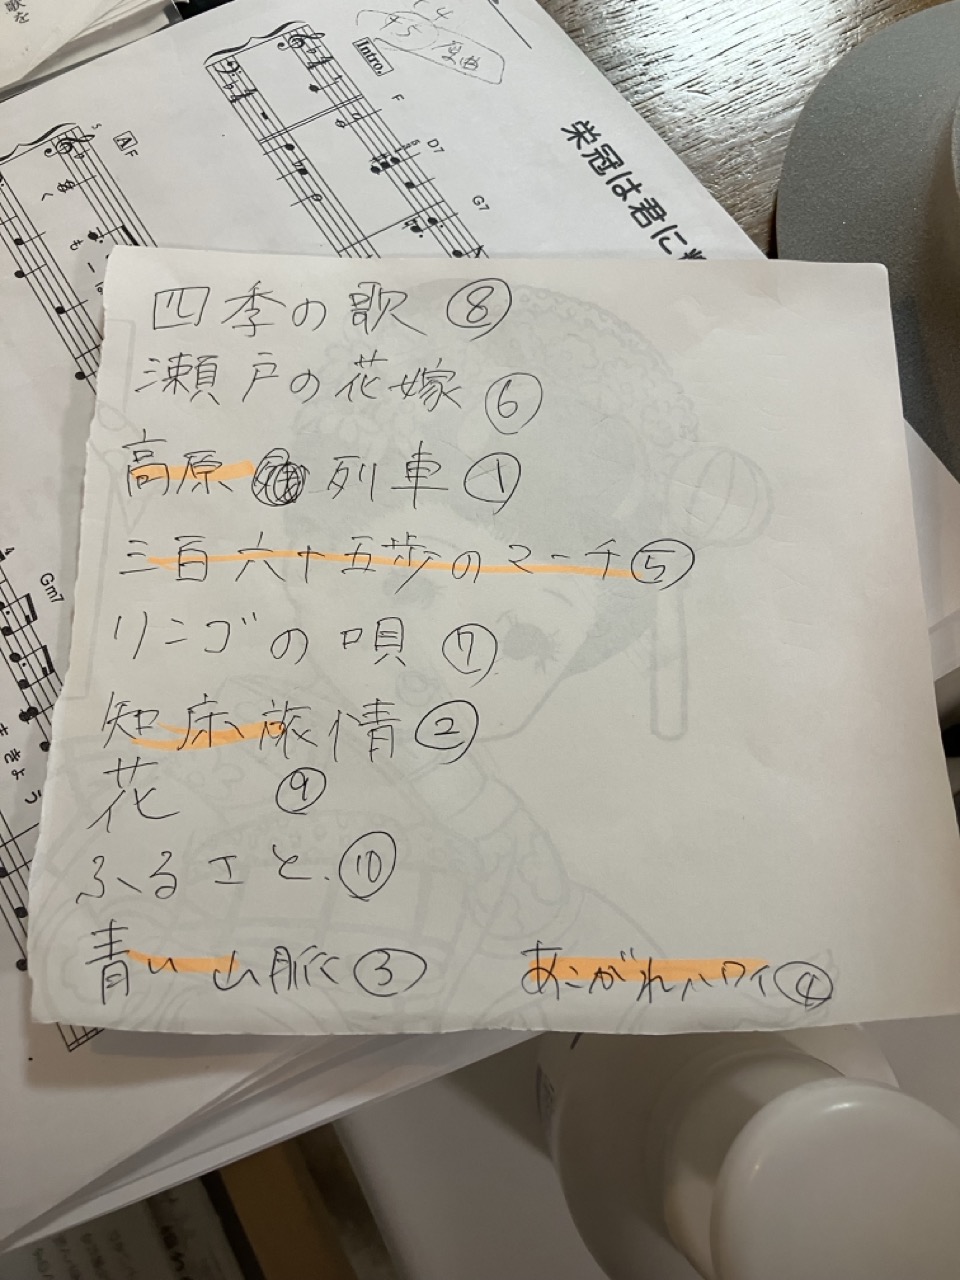 歌を
原曲
Intro.
F
D7
G7
栄冠は君に
A F
Gm7
きょう
四季の歌 ⑧
瀬戸の花嫁 ⑥
高原 列車 ①
三百六十五歩のマーチ ⑤
リンゴの唄 ⑦
知床旅情 ②
花 ⑨
ふるさと. ⑩
青い山脈 ③ あこがれハワイ ④